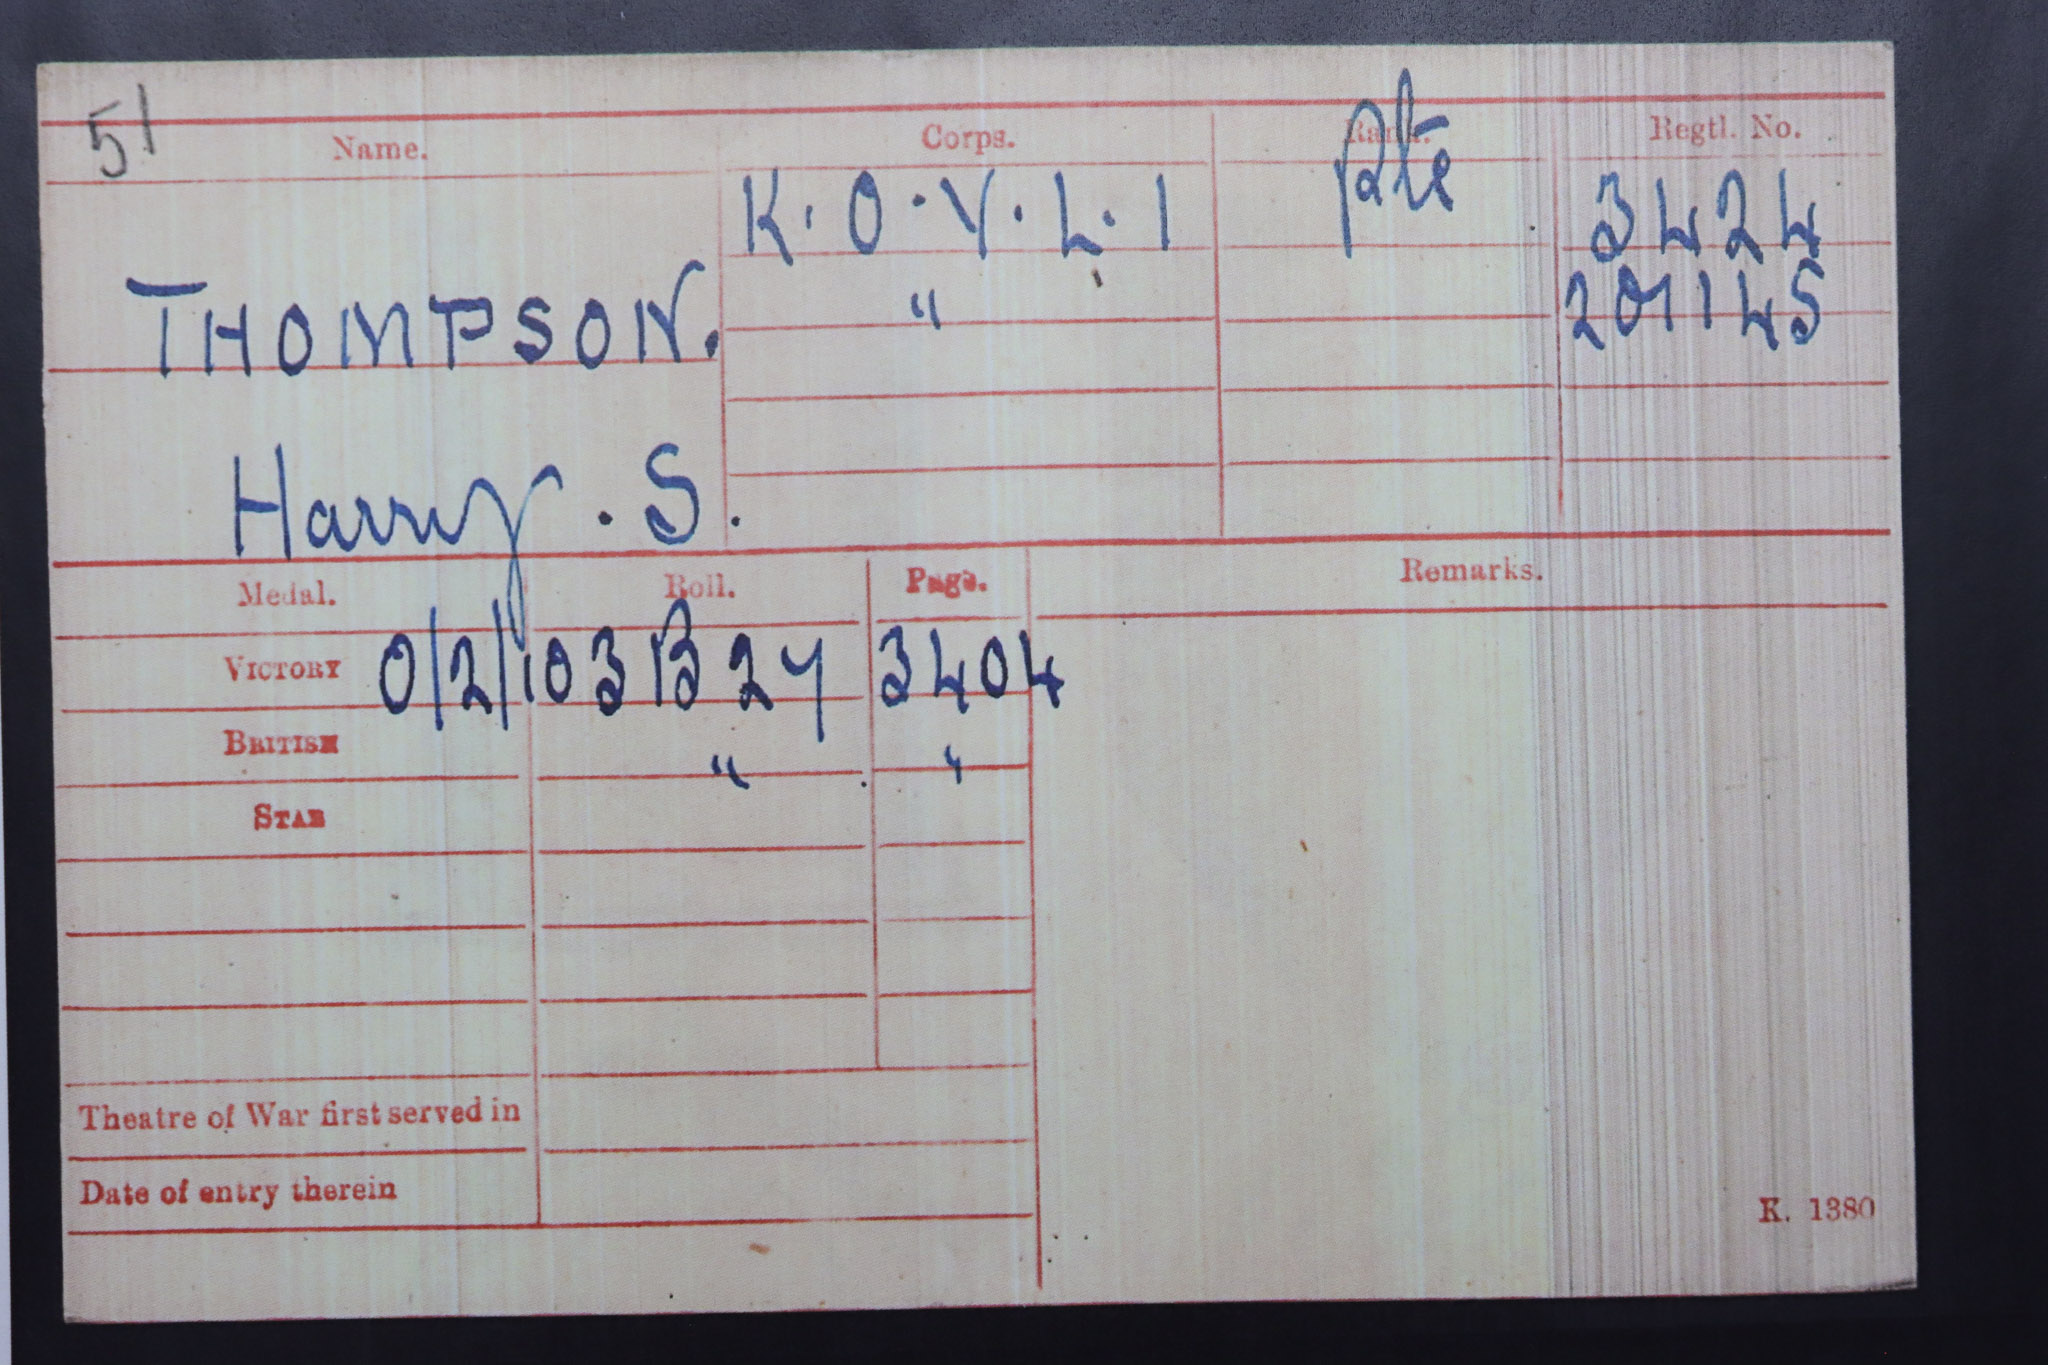 51
Name. Corps. Rank. Regtl. No.
K. O. Y. L. I Pte 3424
THOMPSON. " 201145
Harry. S.
Medal. Roll. Page. Remarks.
VICTORY 0/2/103B27 3404
BRITISH " "
STAR
Theatre of War first served in
Date of entry therein
K. 1380